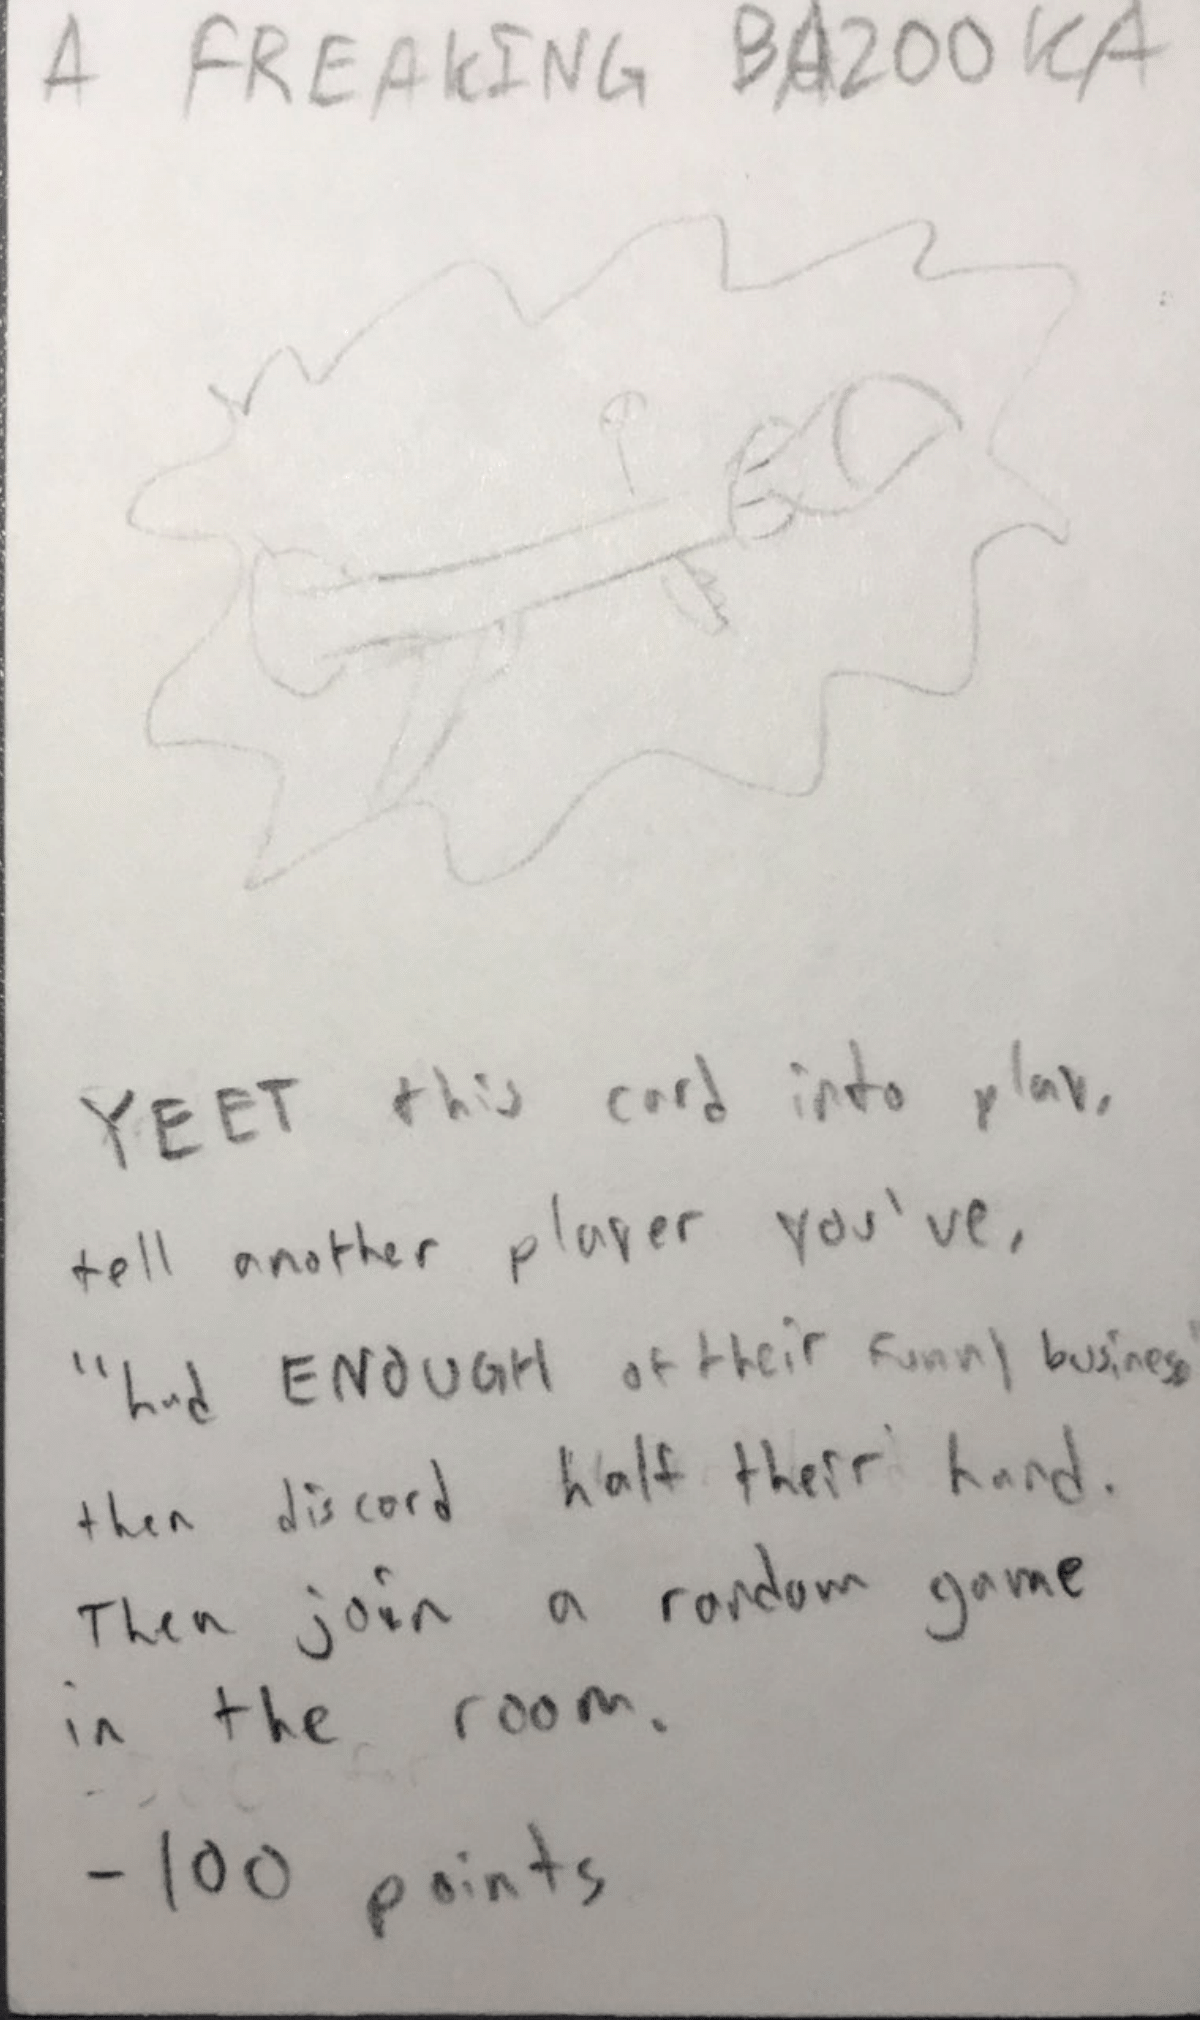 A FREAKING BAZOOKA
YEET this card into play,
tell another player you've,
"had ENOUGH of their funny business"
then discard half their hand.
Then join a random game
in the room.
-100 points